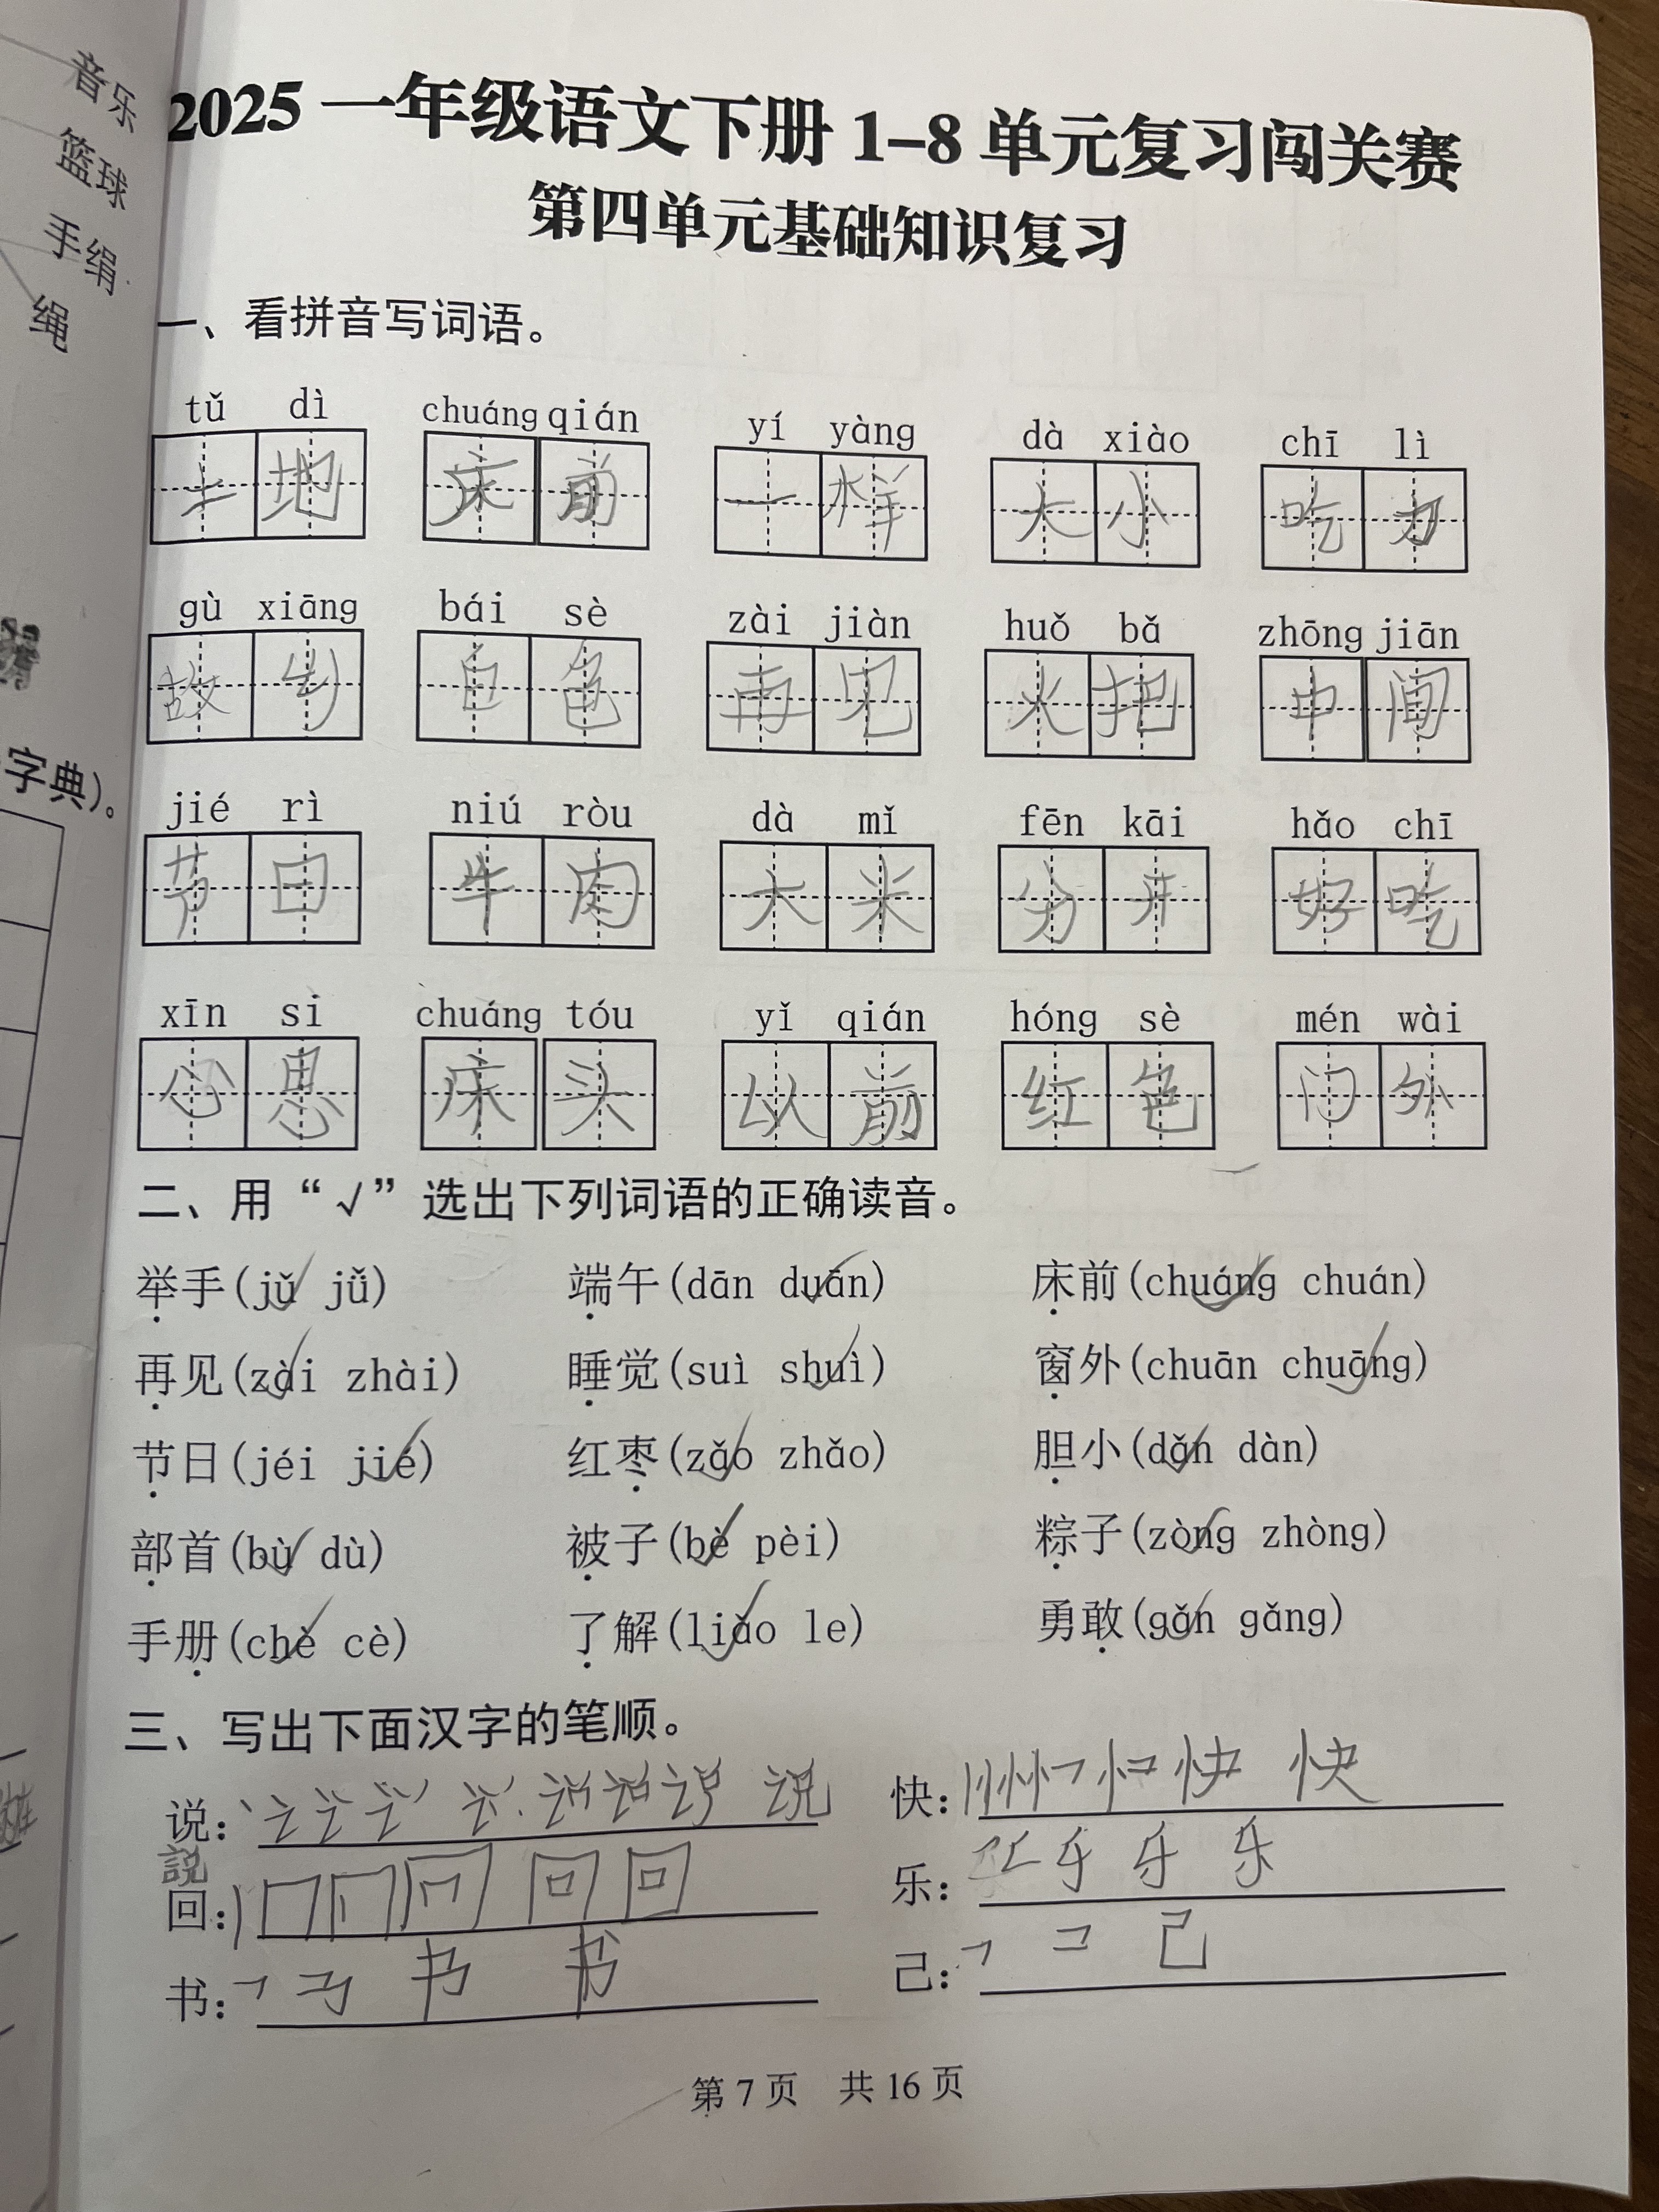 音乐
篮球
手绢
绳
字典)。
2025 一年级语文下册 1–8 单元复习闯关赛
第四单元基础知识复习
一、看拼音写词语。
tǔ dì chuáng qián yí yàng dà xiào chī lì
土地 床前 一样 大小 吃力
gù xiāng bái sè zài jiàn huǒ bǎ zhōng jiān
故乡 白色 再见 火把 中间
jié rì niú ròu dà mǐ fēn kāi hǎo chī
节日 牛肉 大米 分开 好吃
xīn si chuáng tóu yǐ qián hóng sè mén wài
心思 床头 以前 红色 门外
二、用“√”选出下列词语的正确读音。
举手(jǔ jǚ) 端午(dān duān) 床前(chuáng chuán)
再见(zài zhài) 睡觉(suì shuì) 窗外(chuān chuāng)
节日(jéi jié) 红枣(zǎo zhǎo) 胆小(dǎn dàn)
部首(bù dù) 被子(bè pèi) 粽子(zòng zhòng)
手册(chè cè) 了解(liǎo le) 勇敢(gǎn gǎng)
三、写出下面汉字的笔顺。
说: 说 快: 快
説
回: 回 回 乐: 乐
书: 书 己: 己
第 7 页 共 16 页